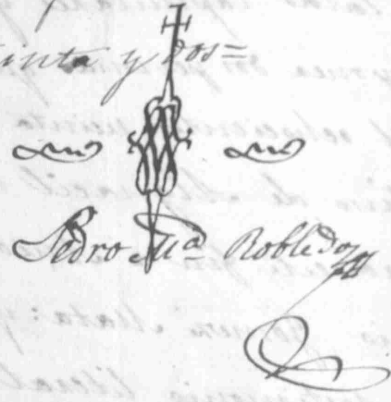 inta y dos=
Pedro Ma Robledo